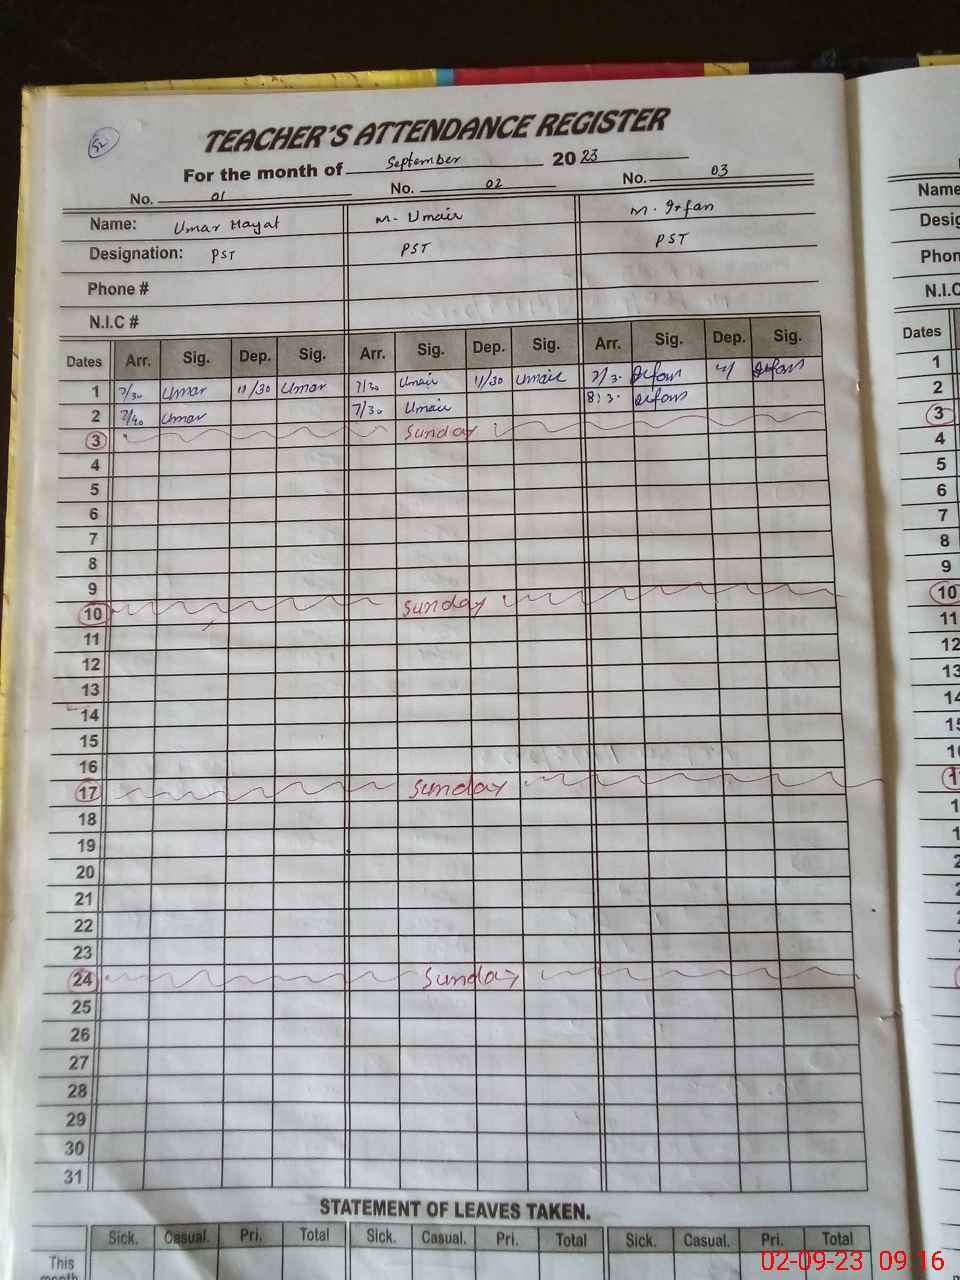 52
TEACHER'S ATTENDANCE REGISTER
For the month of September 2023
No. 01 No. 02 No. 03
Name: Umar Hayat M. Umair M. Irfan
Designation: PST PST PST
Phone #
N.I.C #
Dates Arr. Sig. Dep. Sig. Arr. Sig. Dep. Sig. Arr. Sig. Dep. Sig.
1 7/30 Umar 11/30 Umar 7/30 Umair 11/30 Umair Irfan Irfan
2 7/40 Umar 7/30 Umair Irfan
3 Sunday
4
5
6
7
8
9
10 Sunday
11
12
13
14
15
16
17 Sunday
18
19
20
21
22
23
24 Sunday
25
26
27
28
29
30
31
STATEMENT OF LEAVES TAKEN.
Sick. Casual. Pri. Total Sick. Casual. Pri. Total Sick. Casual. Pri. Total
This
month
Name
Desig
Phon
N.I.C
Dates
1
2
3
4
5
6
7
8
9
10
11
12
13
14
02-09-23 09:16